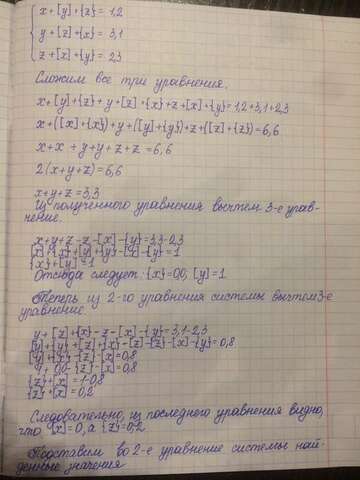 x+[y]+{z}=1,2
y+[z]+{x}=3,1
z+[x]+{y}=2,3
Сложим все три уравнения.
x+[y]+{z}+y+[z]+{x}+z+[x]+{y}=1,2+3,1+2,3
x+([x]+{x})+y+([y]+{y})+z+([z]+{z})=6,6
x+x+y+y+z+z=6,6
2(x+y+z)=6,6
x+y+z=3,3
Из полученного уравнения вычтем 3-е урав-
нение.
x+y+z-z-[x]-{y}=3,3-2,3
[x]+{x}+[y]+{y}-[x]-{y}=1
{x}+[y]=1
Отсюда следует: {x}=0,0; [y]=1
Теперь из 2-го уравнения системы вычтем 3-е
уравнение
y+[z]+{x}-z-[x]-{y}=3,1-2,3
[y]+{y}+[z]+{x}-[z]-{z}-[x]-{y}=0,8
[y]+{x}-{z}-[x]=0,8
1+0,0-{z}-[x]=0,8
{z}+[x]=1-0,8
{z}+[x]=0,2
Следовательно, из последнего уравнения видно,
что [x]=0, а {z}=0,2
Подставим во 2-е уравнение системы най-
денные значения